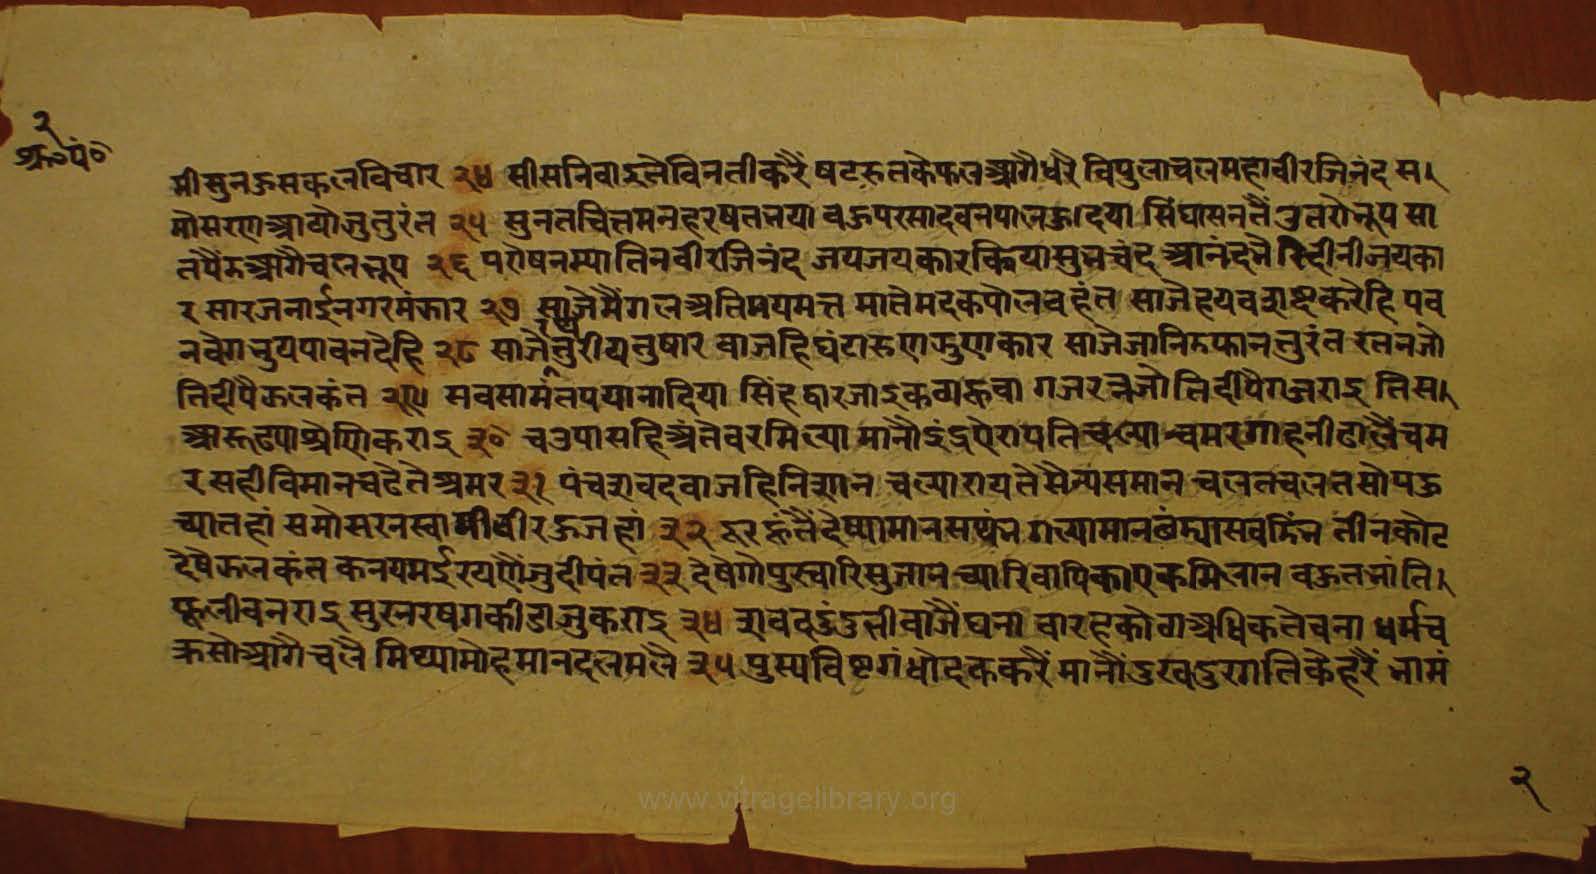 २
श्रु०पं०
मी सुनऊ सकल विचार २४ सीस निवाइ लै विनती करैं षट रुत के फल आगै धरै विपुलाचल महावीर जिनंद स।
मोसरण आव्यो जु तुरंत २५ सुनत चित्त मन हरष त भया बऊ परसाद वनपालऊ दिया सिंघासन तैं उतरो भूप सा
त पैंरु आगै चल भूप २६ परोष नम्या तिन वीर जिनंद जय जय कार किया सुभ चंद आनंद भेरि दीनी जयका
र सार जनाई नगर मंझार २७ साजै मैंगल अति मयमत्त माते मद कपोल बहंत साजे हय वर राष्ट्र करेहि पव
न वेग भुय पाव न देहि २८ साजै तुरीय तुषार बाजहि घंटा रुण झुणकार साजे जानि रु फान तुरंत रतन जो
ति दीपै झलकंत २९ सब सामंत पयाना दिया सिंहद्वार जाइ कव्य रुवा गज रत्न जोति दीपै गजराइ तिस।
आरुढ पा श्रेणिक राइ ३० चउ पासहि अंतेवर मिल्या मानौ इंद्र ऐरापति चल्या चमर गाहनी ढालै चम
र सही विमान चढे ते अमर ३१ पंच शबद बाजहि निशान चल्या राय ते सैन्य समान चलत चलत सो पऊ
च्या तहां समोसरन स्वामी वीर ऊ जहां ३२ दूर हुं तैं देष्या मानस थंभ गल्या मान वंद्या सब डिंभ तीन कोट
देषै झलकंत कनय मई रयणै जु दीपंत ३३ देषे गोपुर च्चारि सुजान च्यारि वापिका एक मिलान बऊत भांति।
फूली वनराइ सुर नर षग कीडा जु कराइ ३४ शबद दुंदुभी बाजैं घना बारह कोडा अधिक ते बना धर्म च
क्र सो आगै चलै मिथ्या मोह मान दलमलै ३५ पुस्प विष्ट गंधोदक करैं मानौं दुख दुरगति के हरैं भामं
२
www.vitragelibrary.org